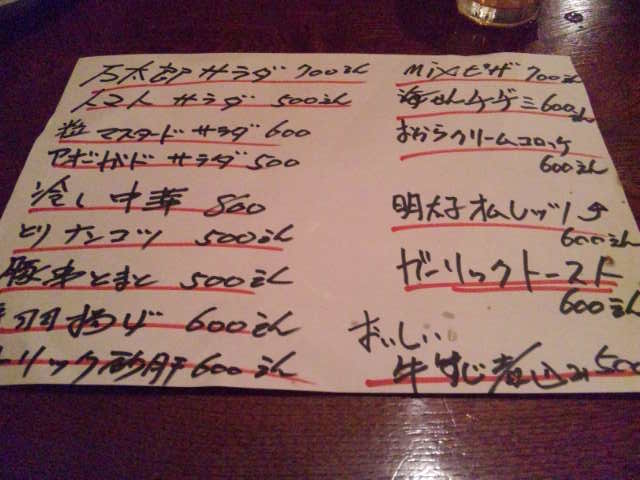 万太郎サラダ 700えん
トマトサラダ 500えん
粒マスタードサラダ 600
アボガドサラダ 500
冷し中華 800
とりナンコツ 500えん
豚串とまと 500えん
羽揚げ 600えん
リック砂肝 600えん
Mixピザ 700えん
海せんチーヂミ 600えん
おからクリームコロッケ
600えん
明太子オムレツ
600えん
ガーリックトースト
600えん
おいしい
牛すじ煮込み 500